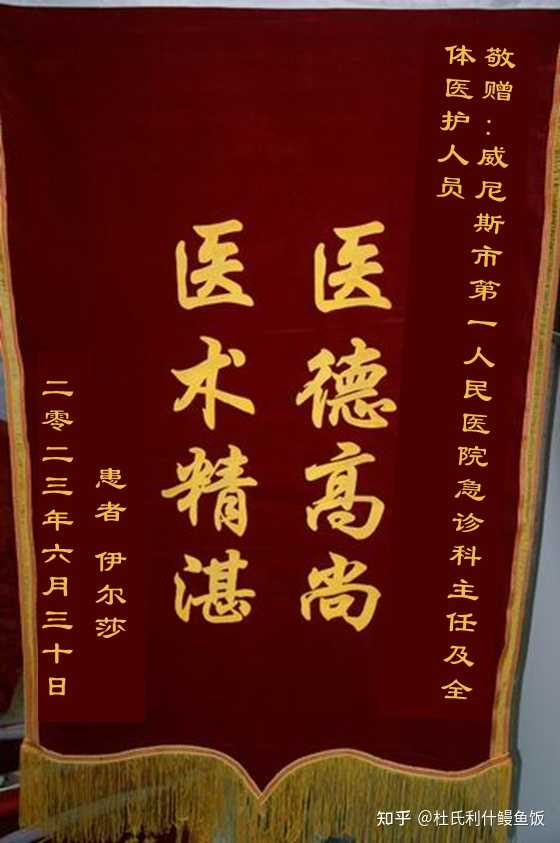 敬赠：威尼斯市第一人民医院急诊科主任及全
体医护人员
医德高尚
医术精湛
患者 伊尔莎
二零二三年六月三十日
知乎 @杜氏利什鳗鱼饭